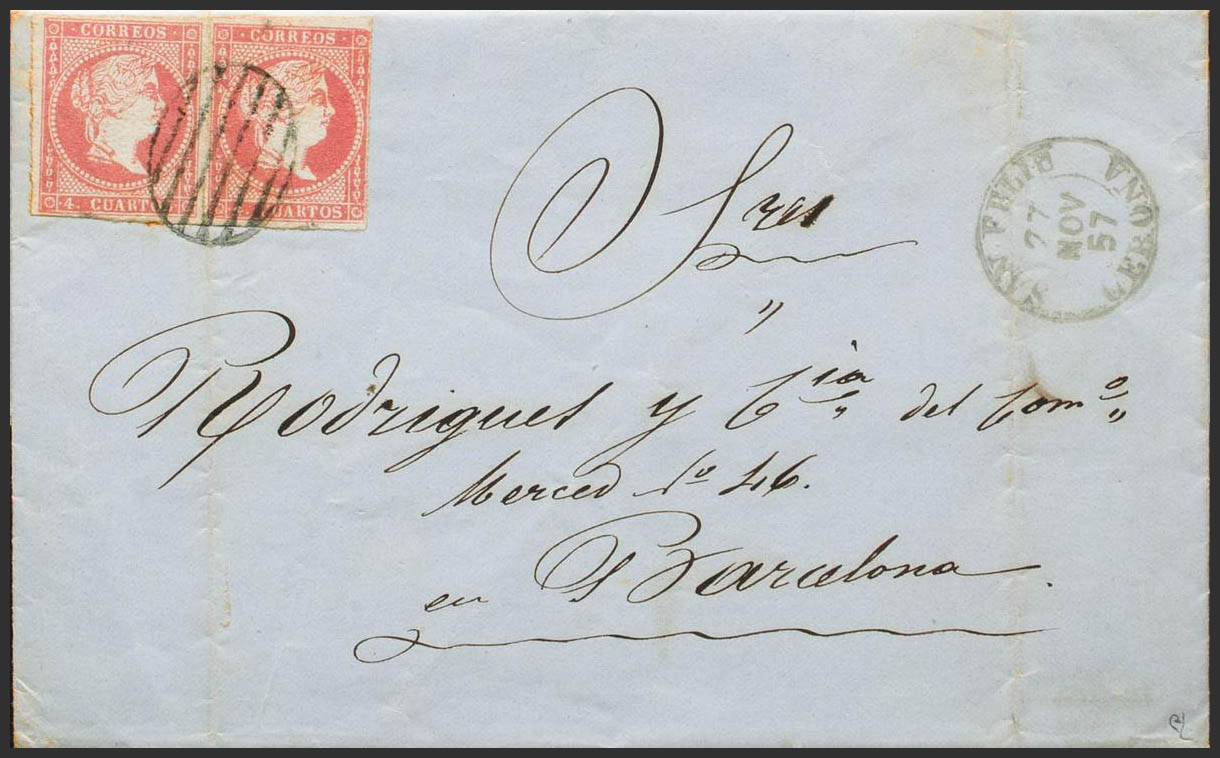 CORREOS CORREOS
4. CUARTOS CUARTOS
SAN FELIU
GERONA
27
NOV
57
Sres
Rodriguez y Cia del Como
Merced No 46.
en Barcelona.